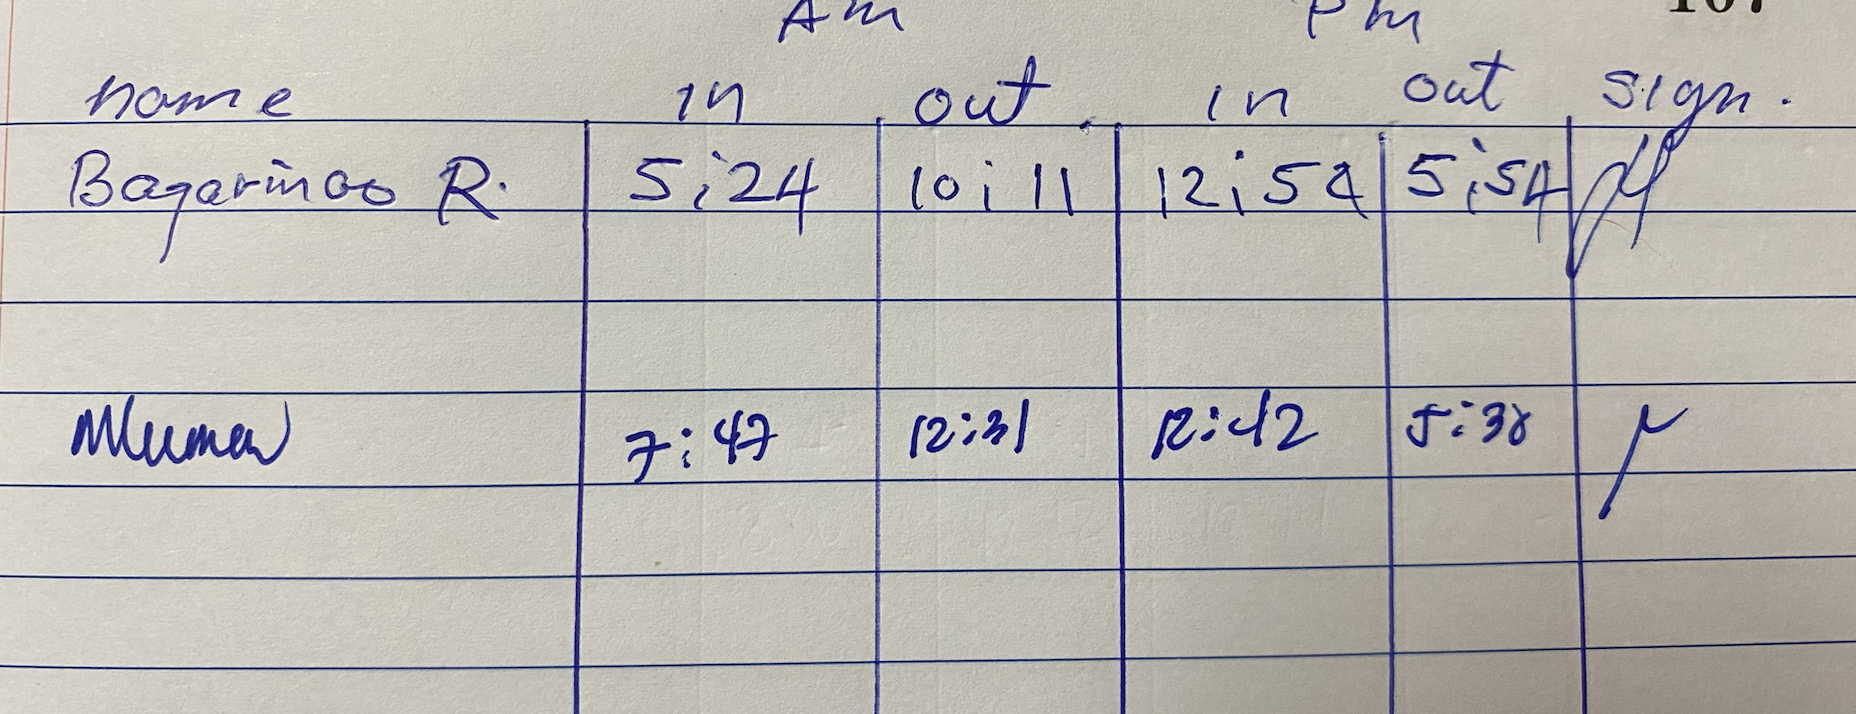 Am Pm 107
name in out in out sign.
Bagarinao R. 5:24 10:11 12:54 5:54
7:47 12:31 12:42 5:38